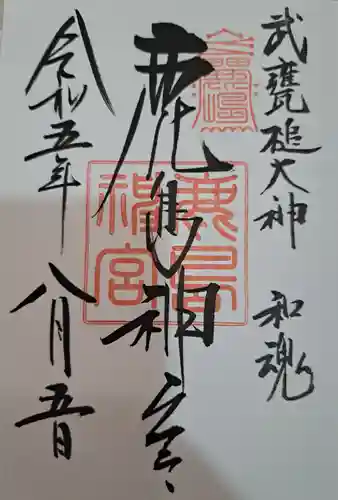 武甕槌大神 和魂
鹿島神宮
鹿島
神宮
令和五年
八月五日